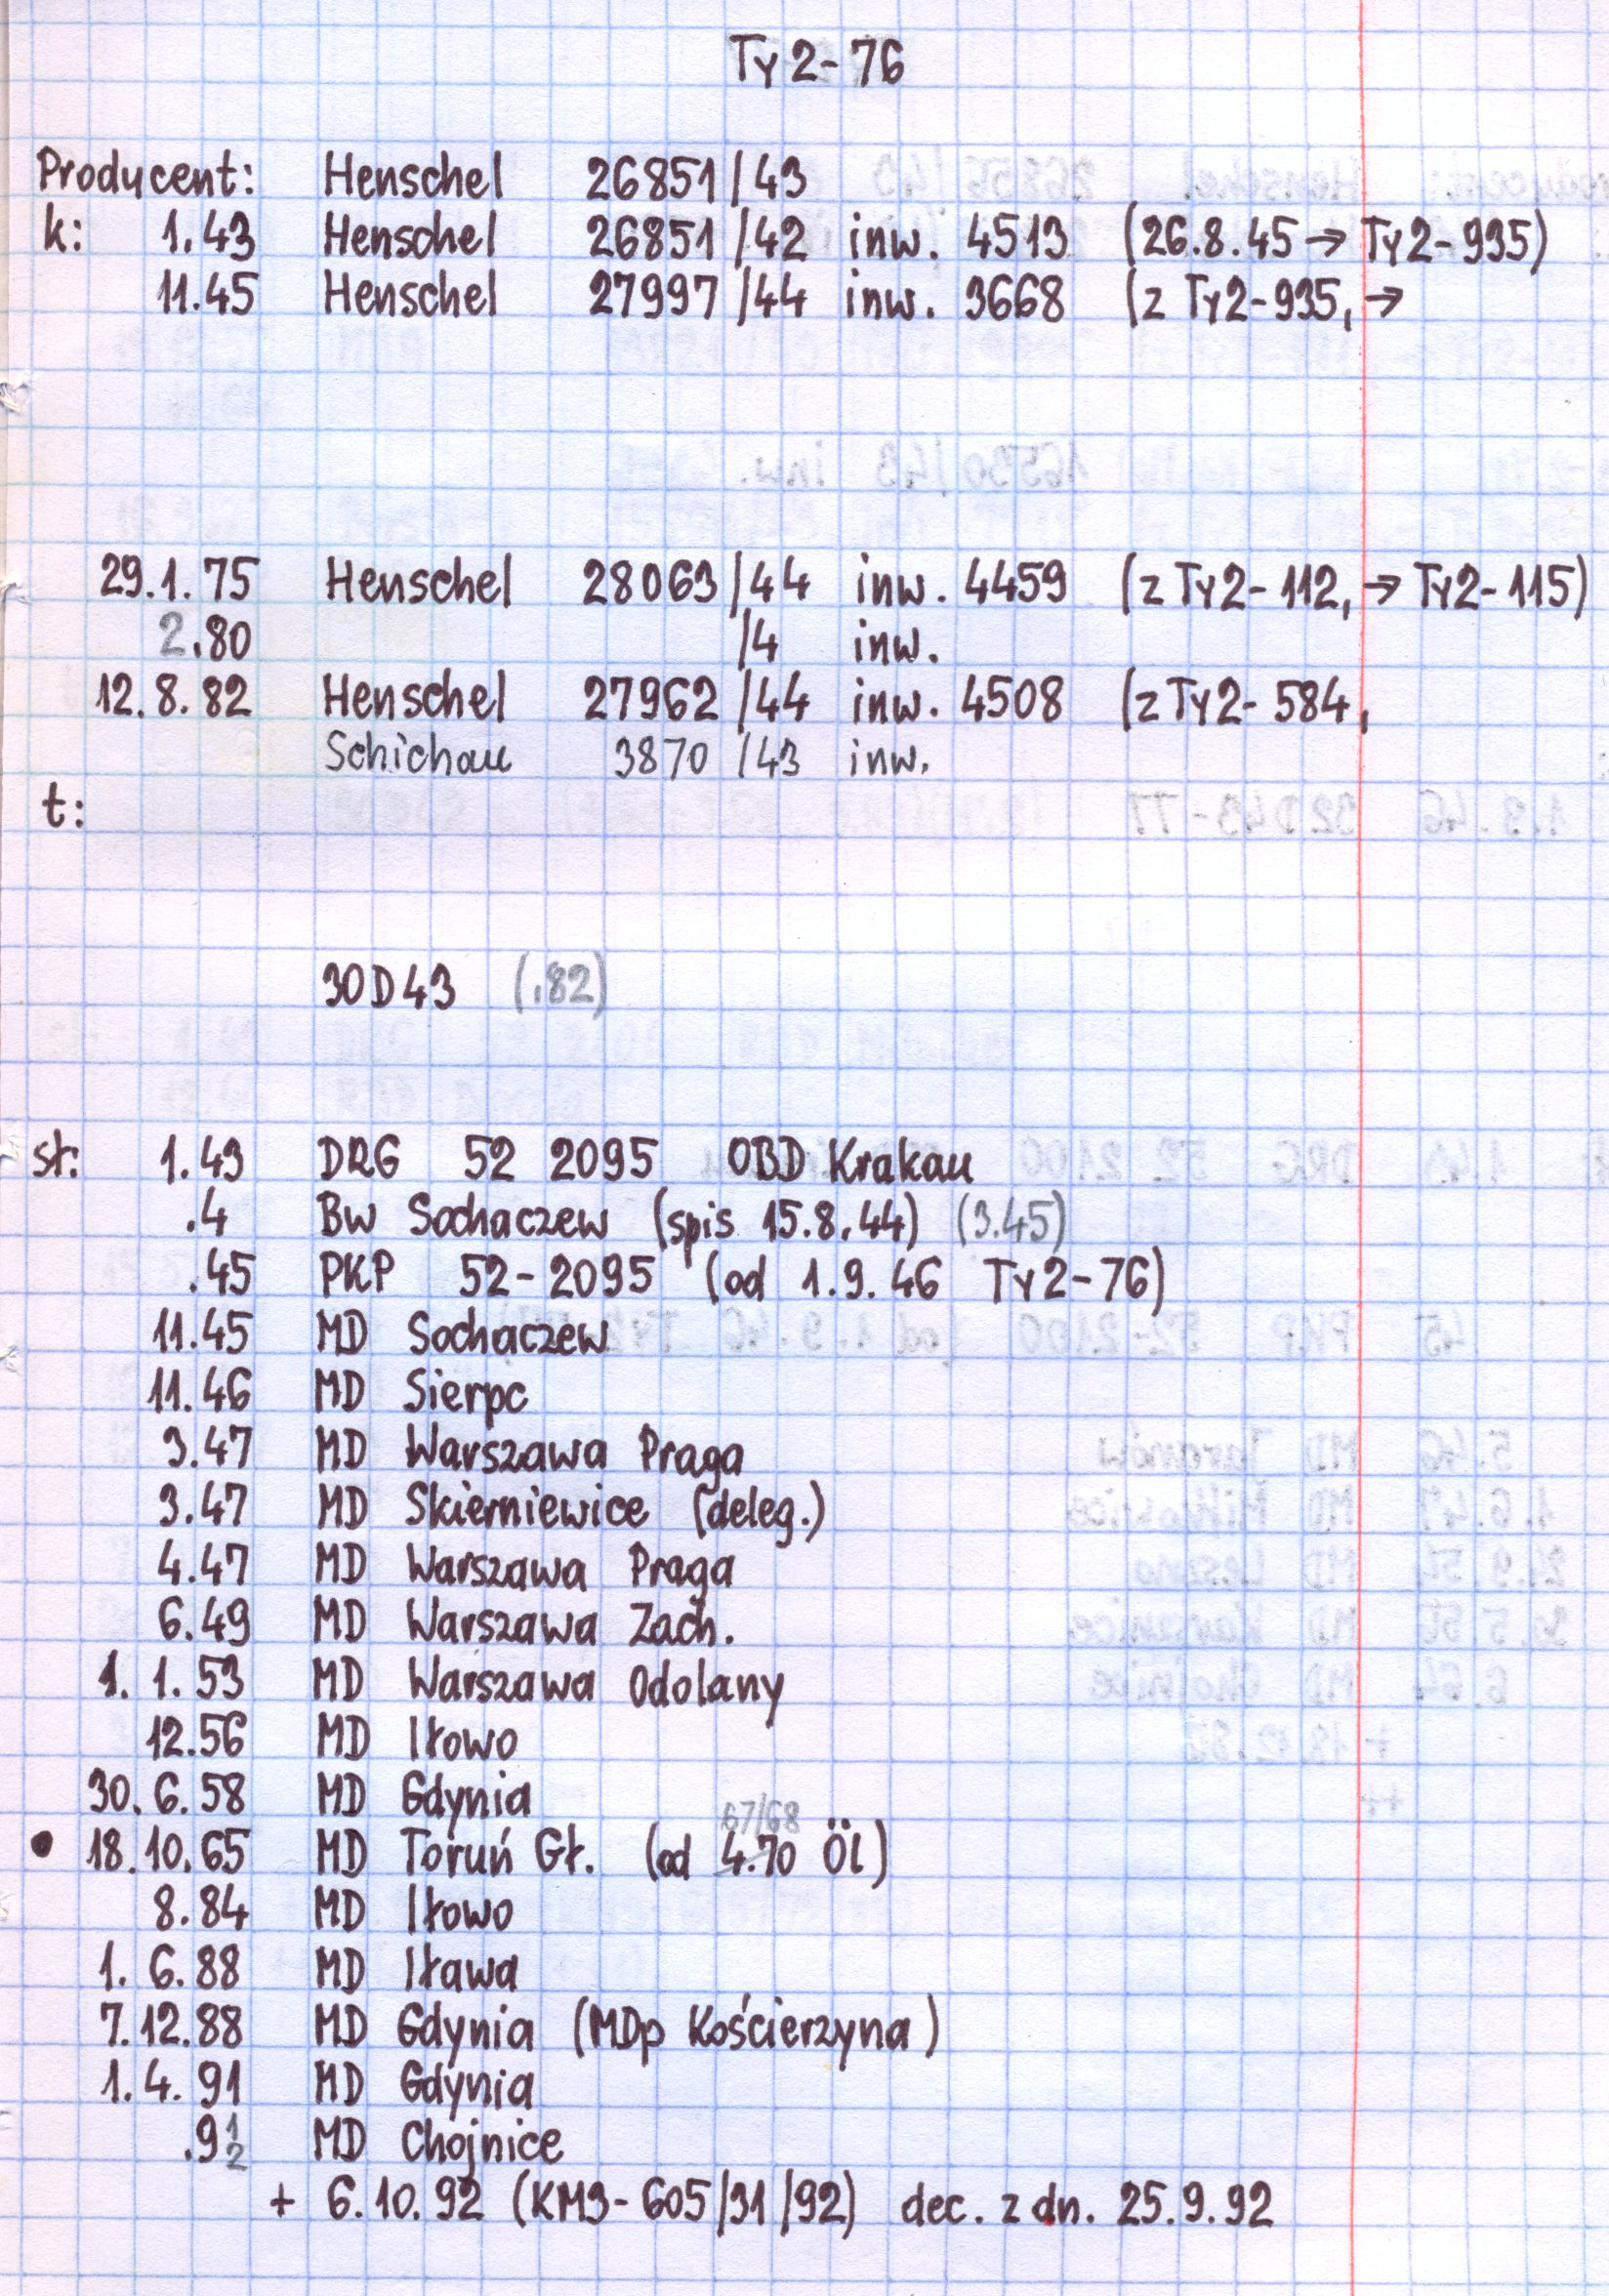 Ty2-76
Producent: Henschel 26851/43
k: 1.43 Henschel 26851/42 inw. 4513 (26.8.45 → Ty2-935)
11.45 Henschel 27997/44 inw. 3668 (z Ty2-935, →
29.1.75 Henschel 28063/44 inw. 4459 (z Ty2-112, → Ty2-115)
2.80 /4 inw.
12.8.82 Henschel 27962/44 inw. 4508 (z Ty2-584,
Schichau 3870/43 inw.
t:
30D43 (.82)
st: 1.43 DRG 52 2095 OBD Krakau
.4 Bw Sochaczew (spis 15.8.44) (3.45)
.45 PKP 52-2095 (od 1.9.46 Ty2-76)
11.45 MD Sochaczew
11.46 MD Sierpc
3.47 MD Warszawa Praga
3.47 MD Skierniewice (deleg.)
4.47 MD Warszawa Praga
6.49 MD Warszawa Zach.
1. 1.53 MD Warszawa Odolany
12.56 MD Iłowo
30. 6.58 MD Gdynia
67/68
• 18.10.65 MD Toruń Gł. (od 4.70 Öl)
8.84 MD Iłowo
1. 6.88 MD Iława
7.12.88 MD Gdynia (MDp Kościerzyna)
1.4.91 MD Gdynia
.91 2 MD Chojnice
+ 6.10.92 (KM3-605/31/92) dec. z dn. 25.9.92